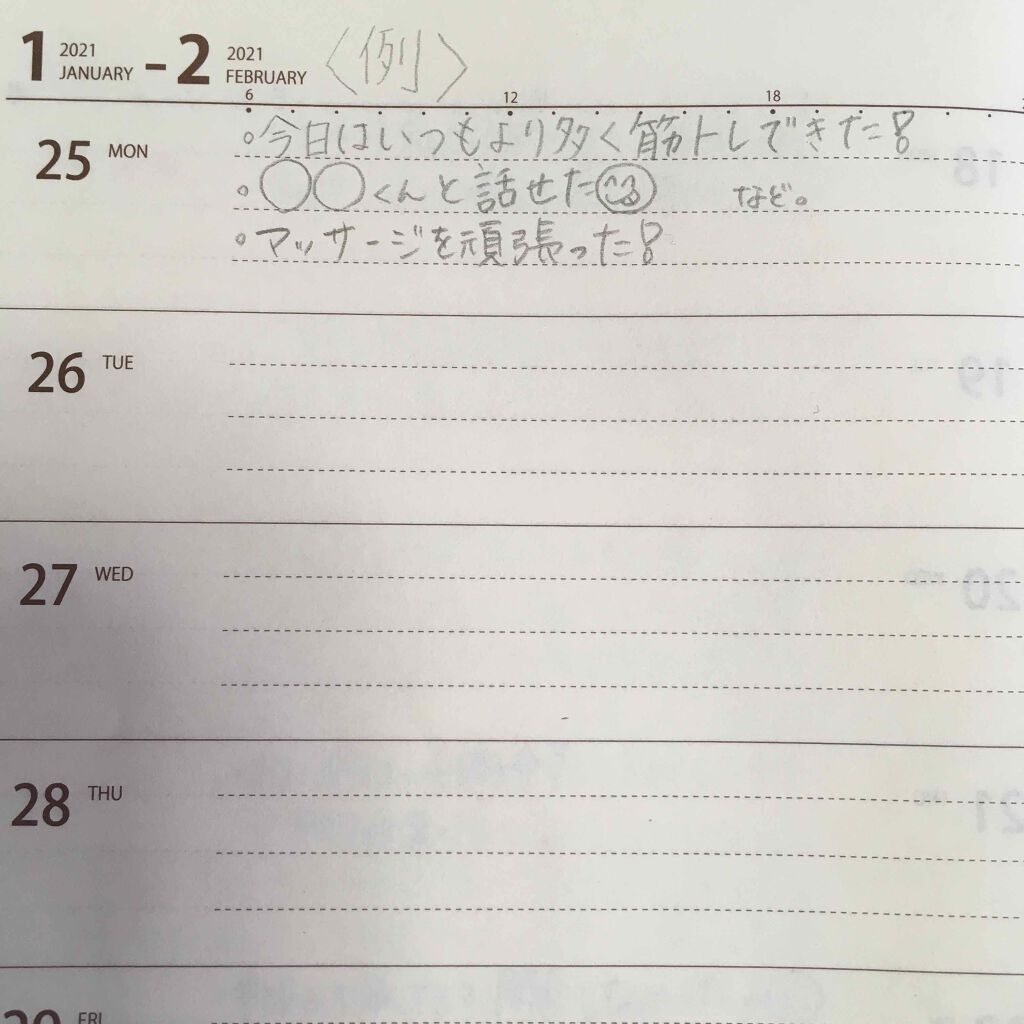 1 2021 JANUARY - 2 2021 FEBRUARY 〈例〉
6 12 18
25 MON
。今日はいつもより多く筋トレできた!
。○○くんと話せた など。
。マッサージを頑張った!
26 TUE
27 WED
28 THU
FRI
18
19
20
21